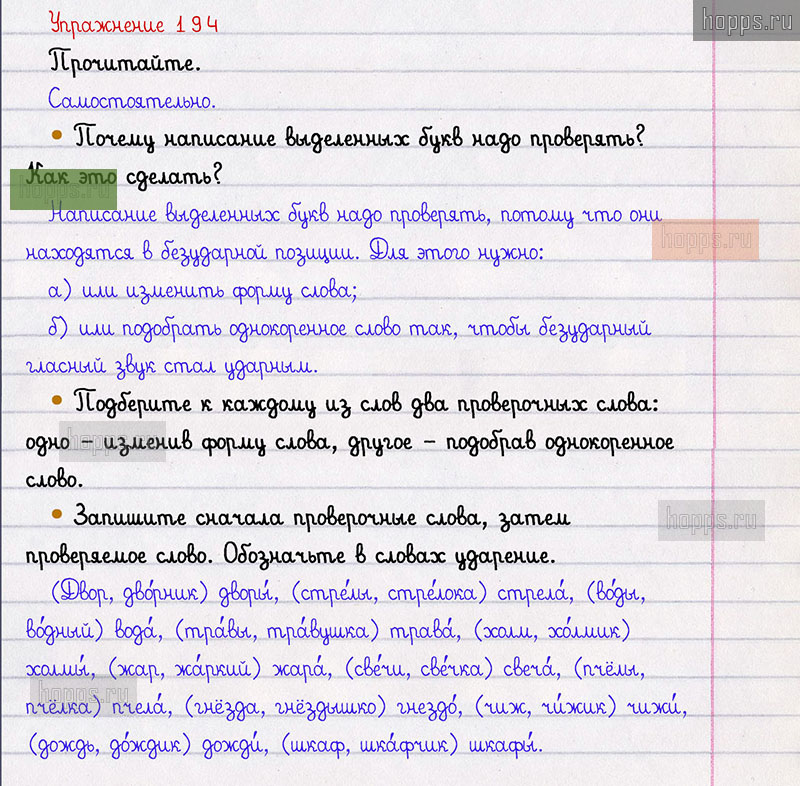 hopps.ru
Упражнение 194
Прочитайте.
Самостоятельно.
• Почему написание выделенных букв надо проверять?
Как это сделать?
hopps.ru
Написание выделенных букв надо проверять, потому что они
hopps.ru
находятся в безударной позиции. Для этого нужно:
а) или изменить форму слова;
б) или подобрать однокоренное слово так, чтобы безударный
гласный звук стал ударным.
• Подберите к каждому из слов два проверочных слова:
одно – изменив форму слова, другое – подобрав однокоренное
hopps.ru
слово.
• Запишите сначала проверочные слова, затем
hopps.ru
проверяемое слово. Обозначьте в словах ударение.
(Двор, дво́рник) дворы́, (стре́лы, стре́лока) стрела́, (во́ды,
во́дный) вода́, (тра́вы, тра́вушка) трава́, (холм, хо́лмик)
холмы́, (жар, жа́ркий) жара́, (све́чи, све́чка) свеча́, (пчёлы,
hopps.ru
пчёлка) пчела́, (гнёзда, гнёздышко) гнездо́, (чиж, чи́жик) чижи́,
(дождь, до́ждик) дожди́, (шкаф, шка́фчик) шкафы́.